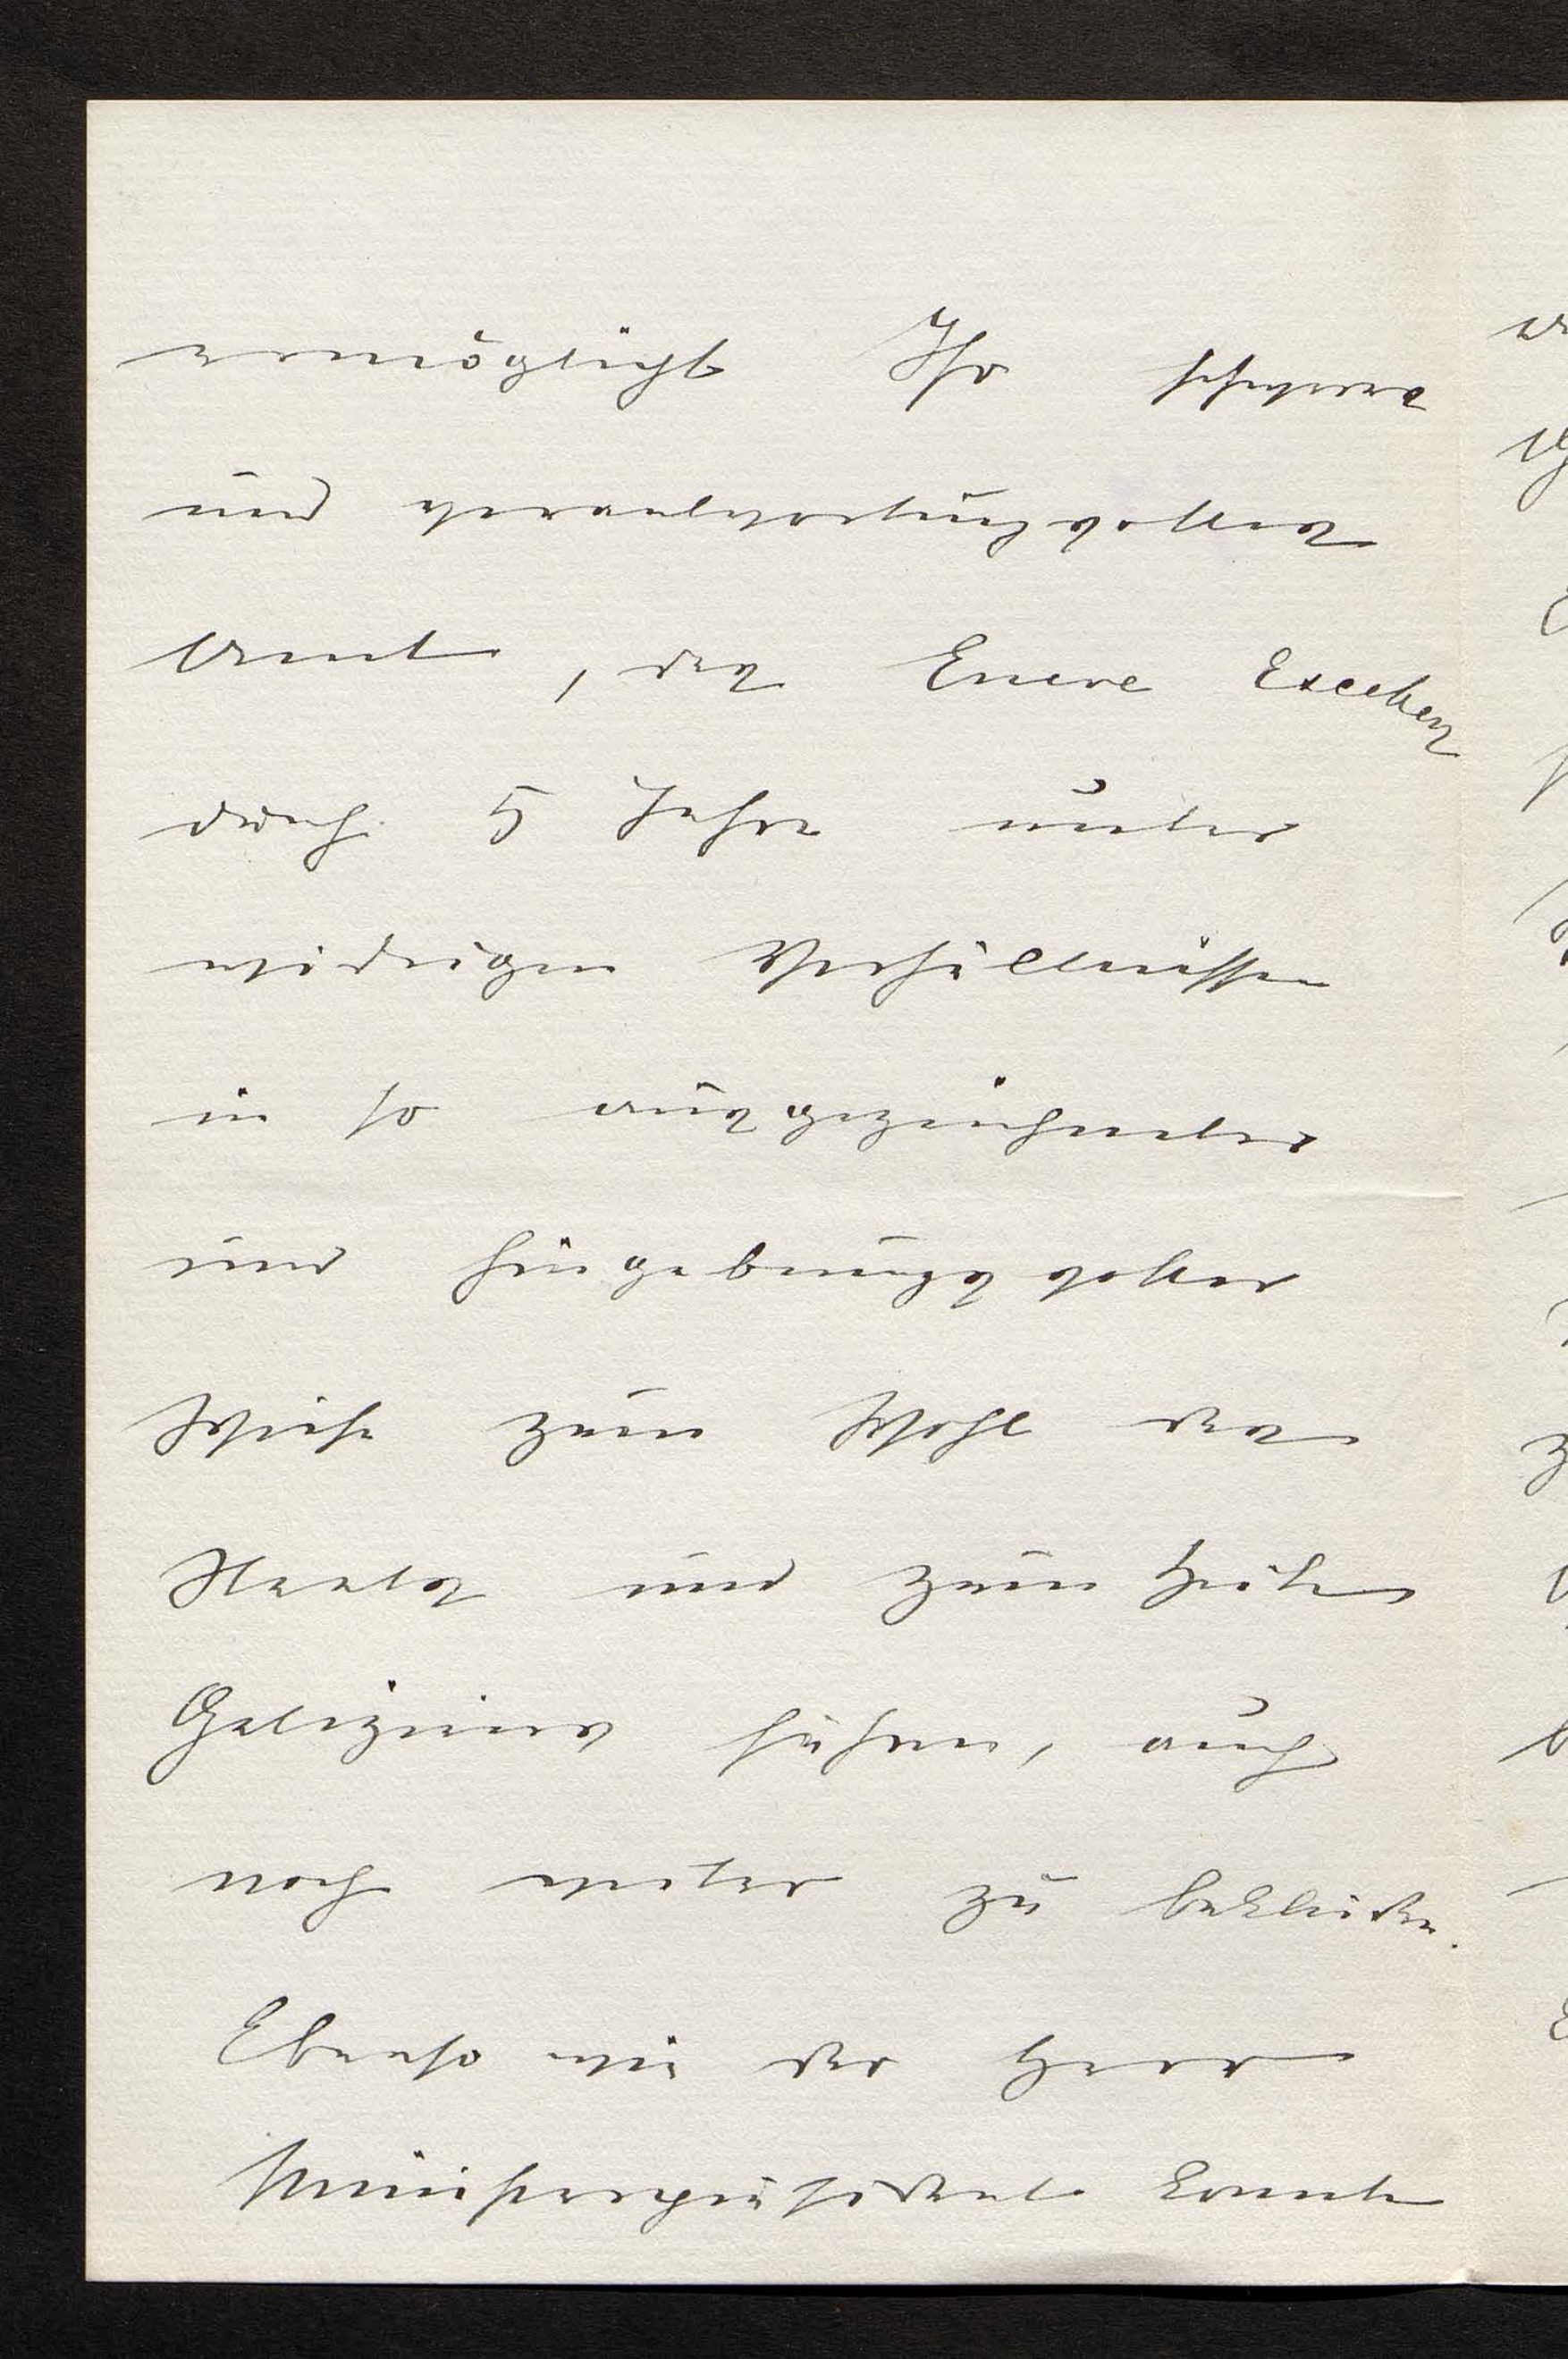 ermöglicht Ihr schweres
und verantwortungsvolles
Amt, das Euere Excellenz
durch 5 Jahre unter
widrigen Verhältnissen
in so ausgezeichneter
und hingebungsvoller
Weise zum Wohl des
Staates und zum Heile
Galiziens führen, auch
noch weiter zu bekleiden.
Ebenso wie der Herr
Ministerpräsident konnte